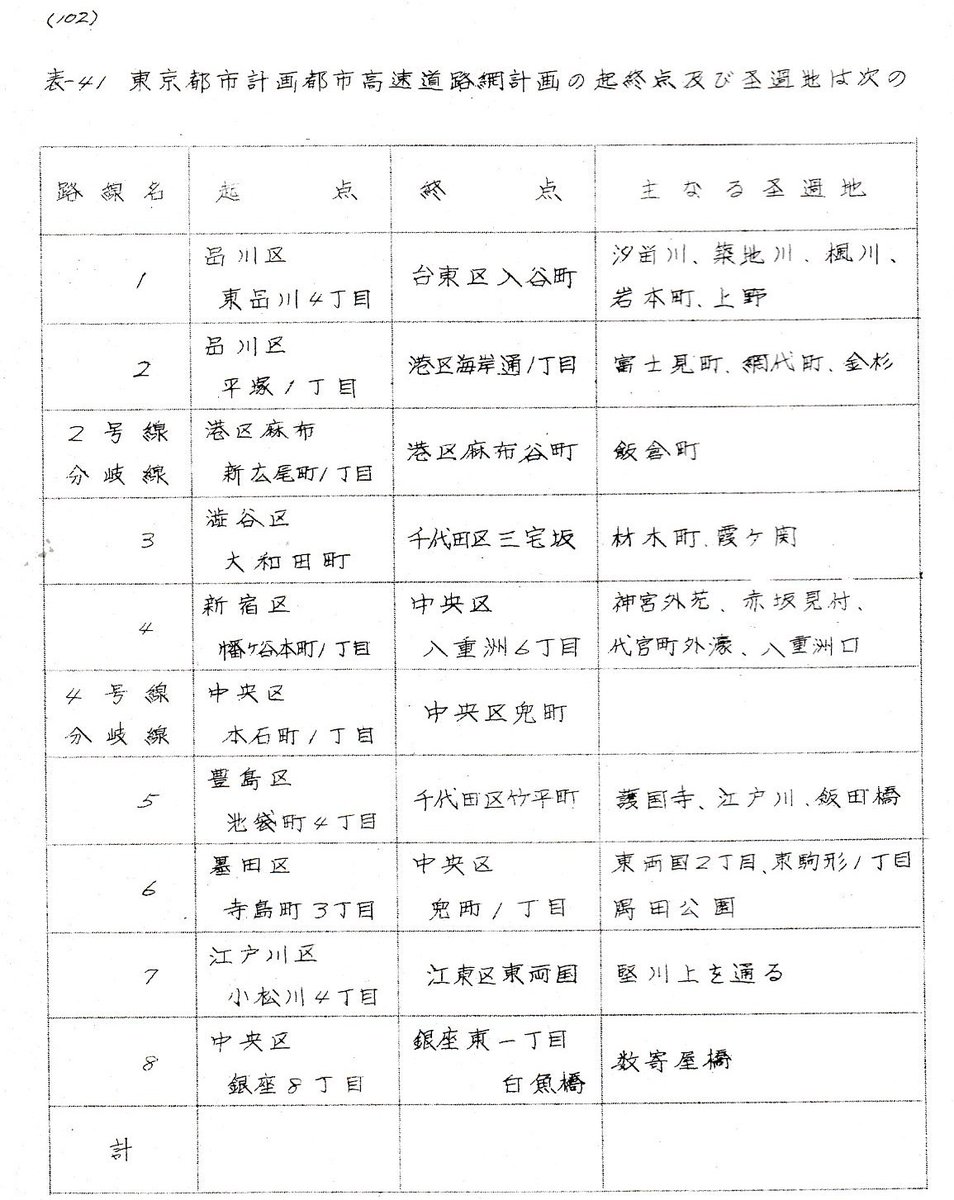 (102)
表-41 東京都市計画都市高速道路網計画の起終点及び圣過地は次の
路線名 起点 終点 主なる圣過地
1 品川区 東品川4丁目 台東区入谷町 汐留川、築地川、楓川、
岩本町、上野
2 品川区 平塚1丁目 港区海岸通1丁目 富士見町、網代町、金杉
2号線 分岐線 港区麻布 新広尾町1丁目 港区麻布谷町 飯倉町
3 渋谷区 大和田町 千代田区三宅坂 材木町、霞ヶ関
4 新宿区 幡ヶ谷本町1丁目 中央区 八重洲6丁目 神宮外苑、赤坂見付、
代官町外濠、八重洲口
4号線 分岐線 中央区 本石町1丁目 中央区兜町
5 豊島区 池袋町4丁目 千代田区竹平町 護国寺、江戸川、飯田橋
6 墨田区 寺島町3丁目 中央区 兜町1丁目 東両国2丁目、東駒形1丁目
隅田公園
7 江戸川区 小松川4丁目 江東区東両国 竪川上を通る
8 中央区 銀座8丁目 銀座東一丁目 白魚橋 数寄屋橋
計